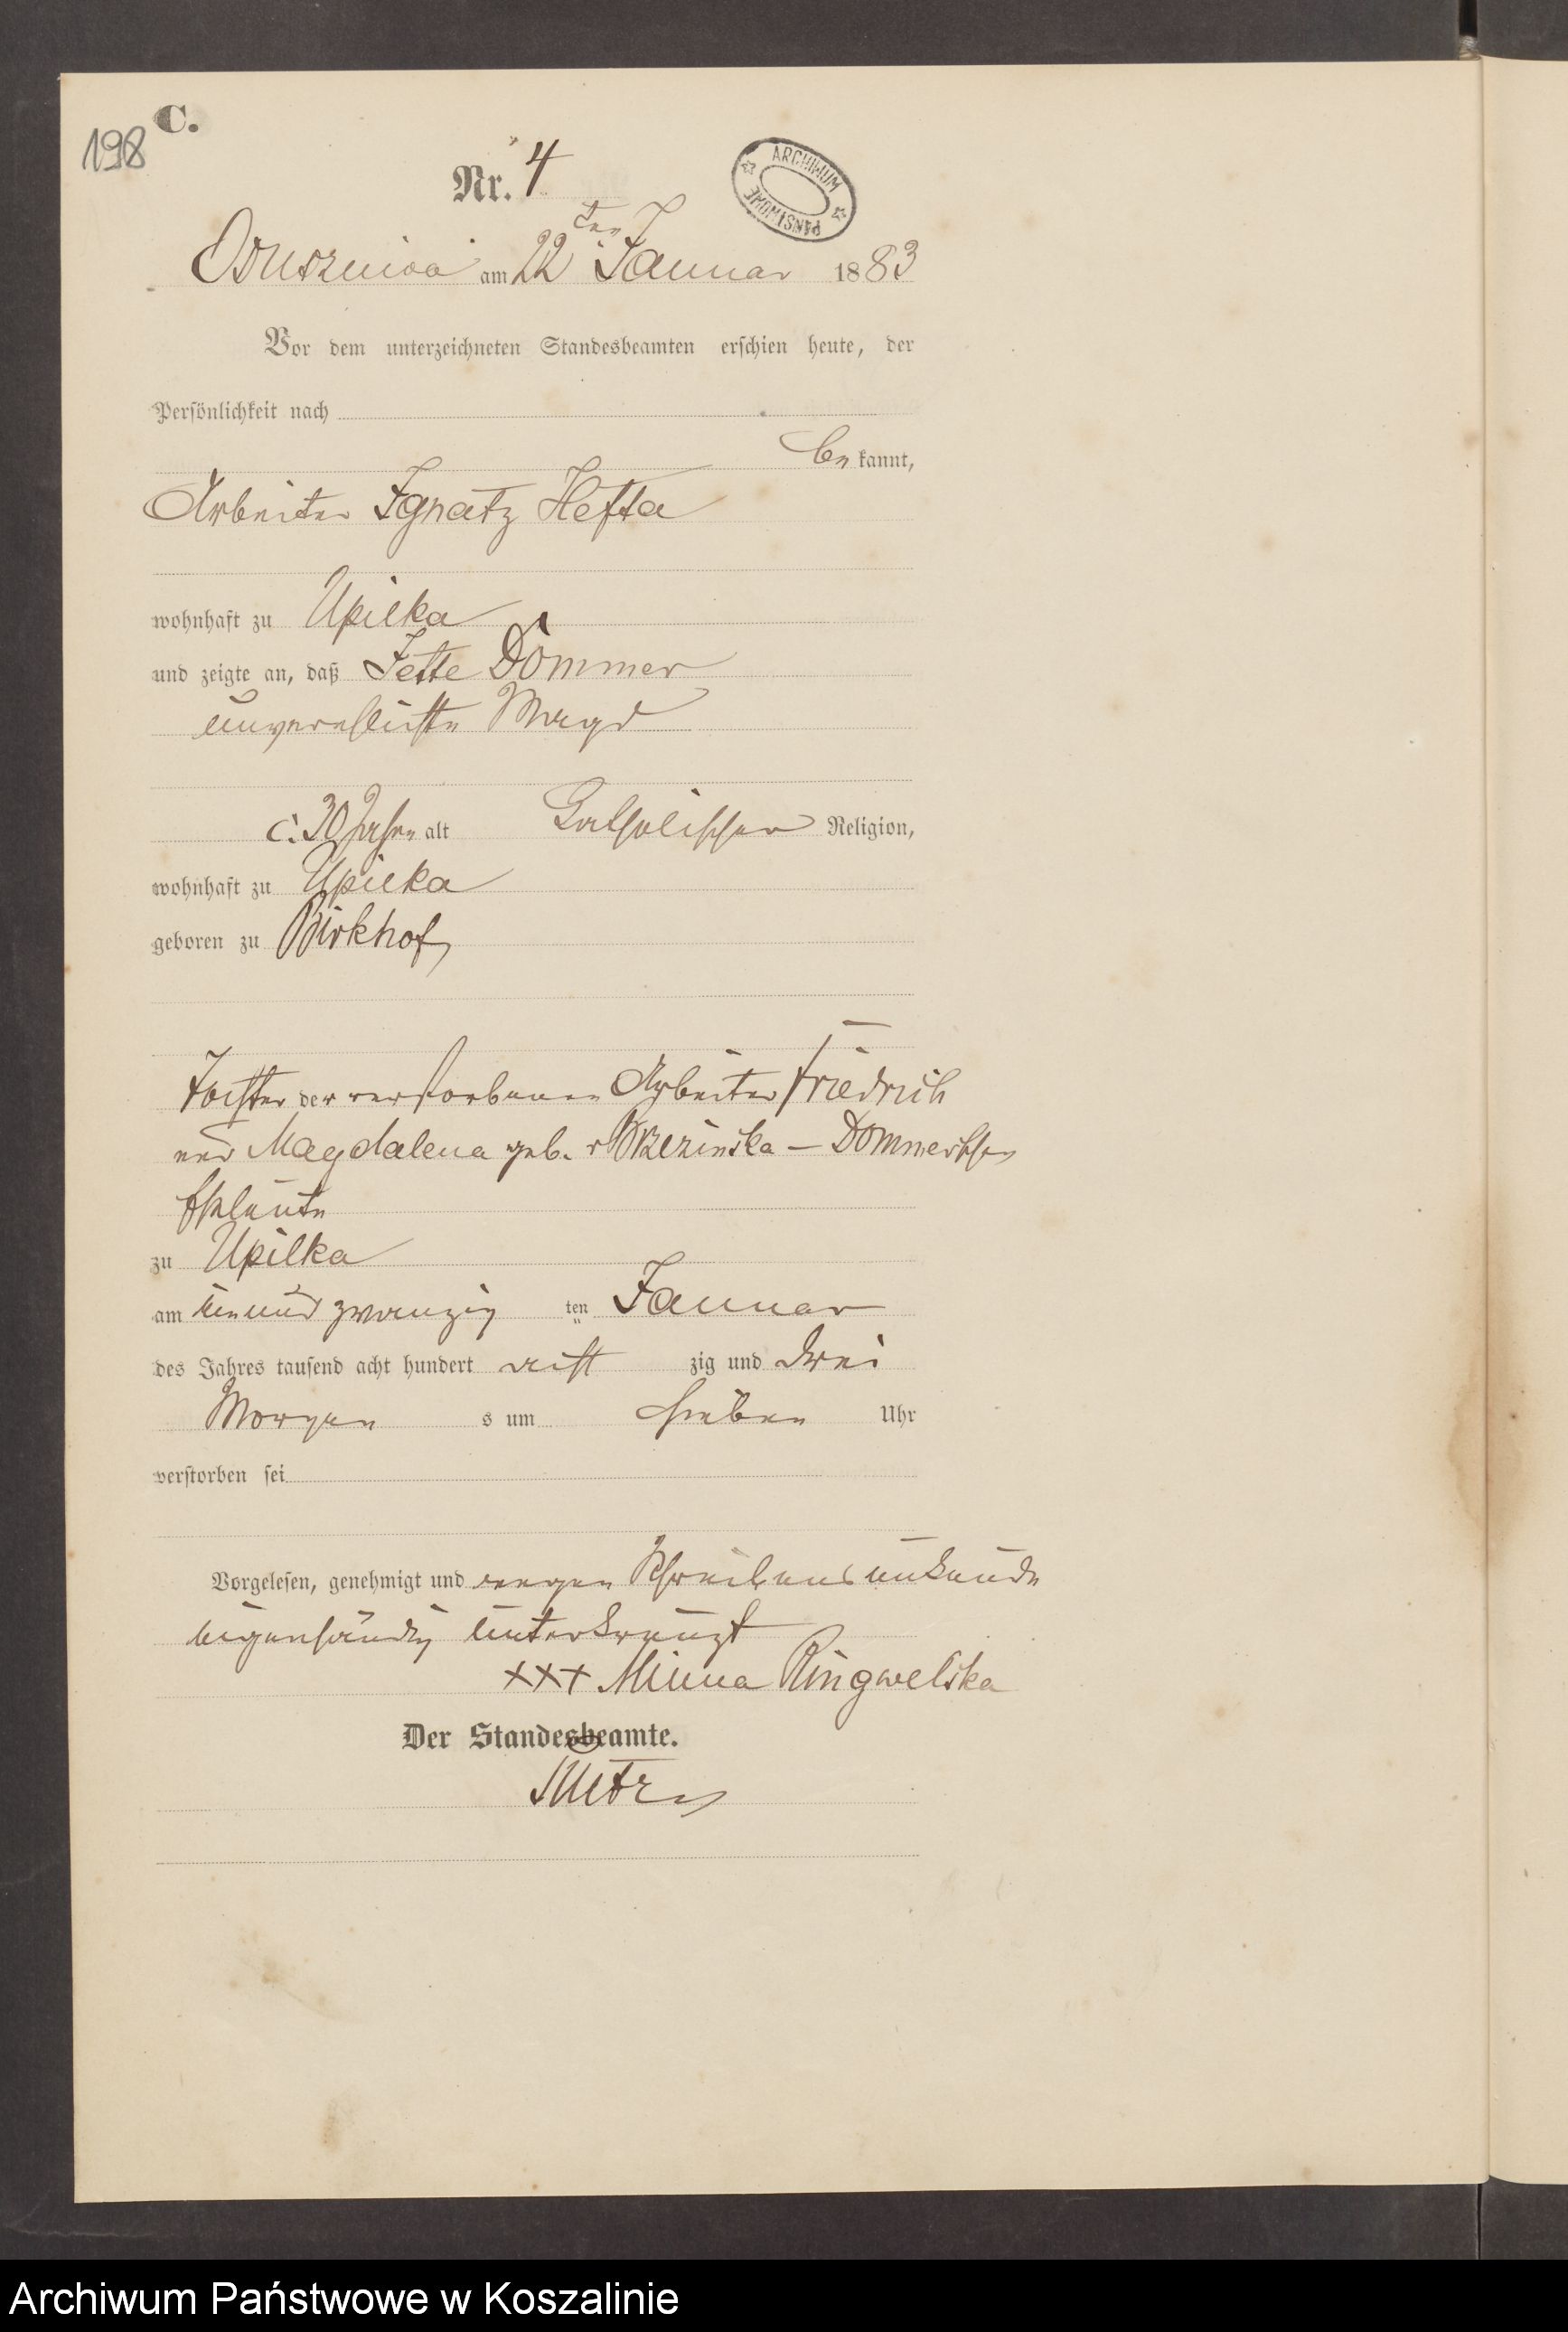 C.
198
Nr. 4
ARCHIWUM PAŃSTWOWE
Osusznica am 22 ten Januar 1883
Vor dem unterzeichneten Standesbeamten erschien heute, der
Persönlichkeit nach
be kannt,
Arbeiter Ignatz Hefta
wohnhaft zu Upilka
und zeigte an, daß Jette Dommer
unverehlichte Magd
c. 30 Jahre alt Catholischer Religion,
wohnhaft zu Upilka
geboren zu Birkhof
Tochter der verstorbenen Arbeiter Friedrich
und Magdalena geb. v Brzezinska – Dommerschen
Eheleute
zu Upilka
am ein und zwanzig ten Januar
des Jahres tausend acht hundert acht zig und drei
Morgen s um sieben Uhr
verstorben sei
Vorgelesen, genehmigt und wegen Schreibensunkunde
eigenhändig unterkreuzt
+++ Minna Ringwelska
Der Standesbeamte.
Archiwum Państwowe w Koszalinie